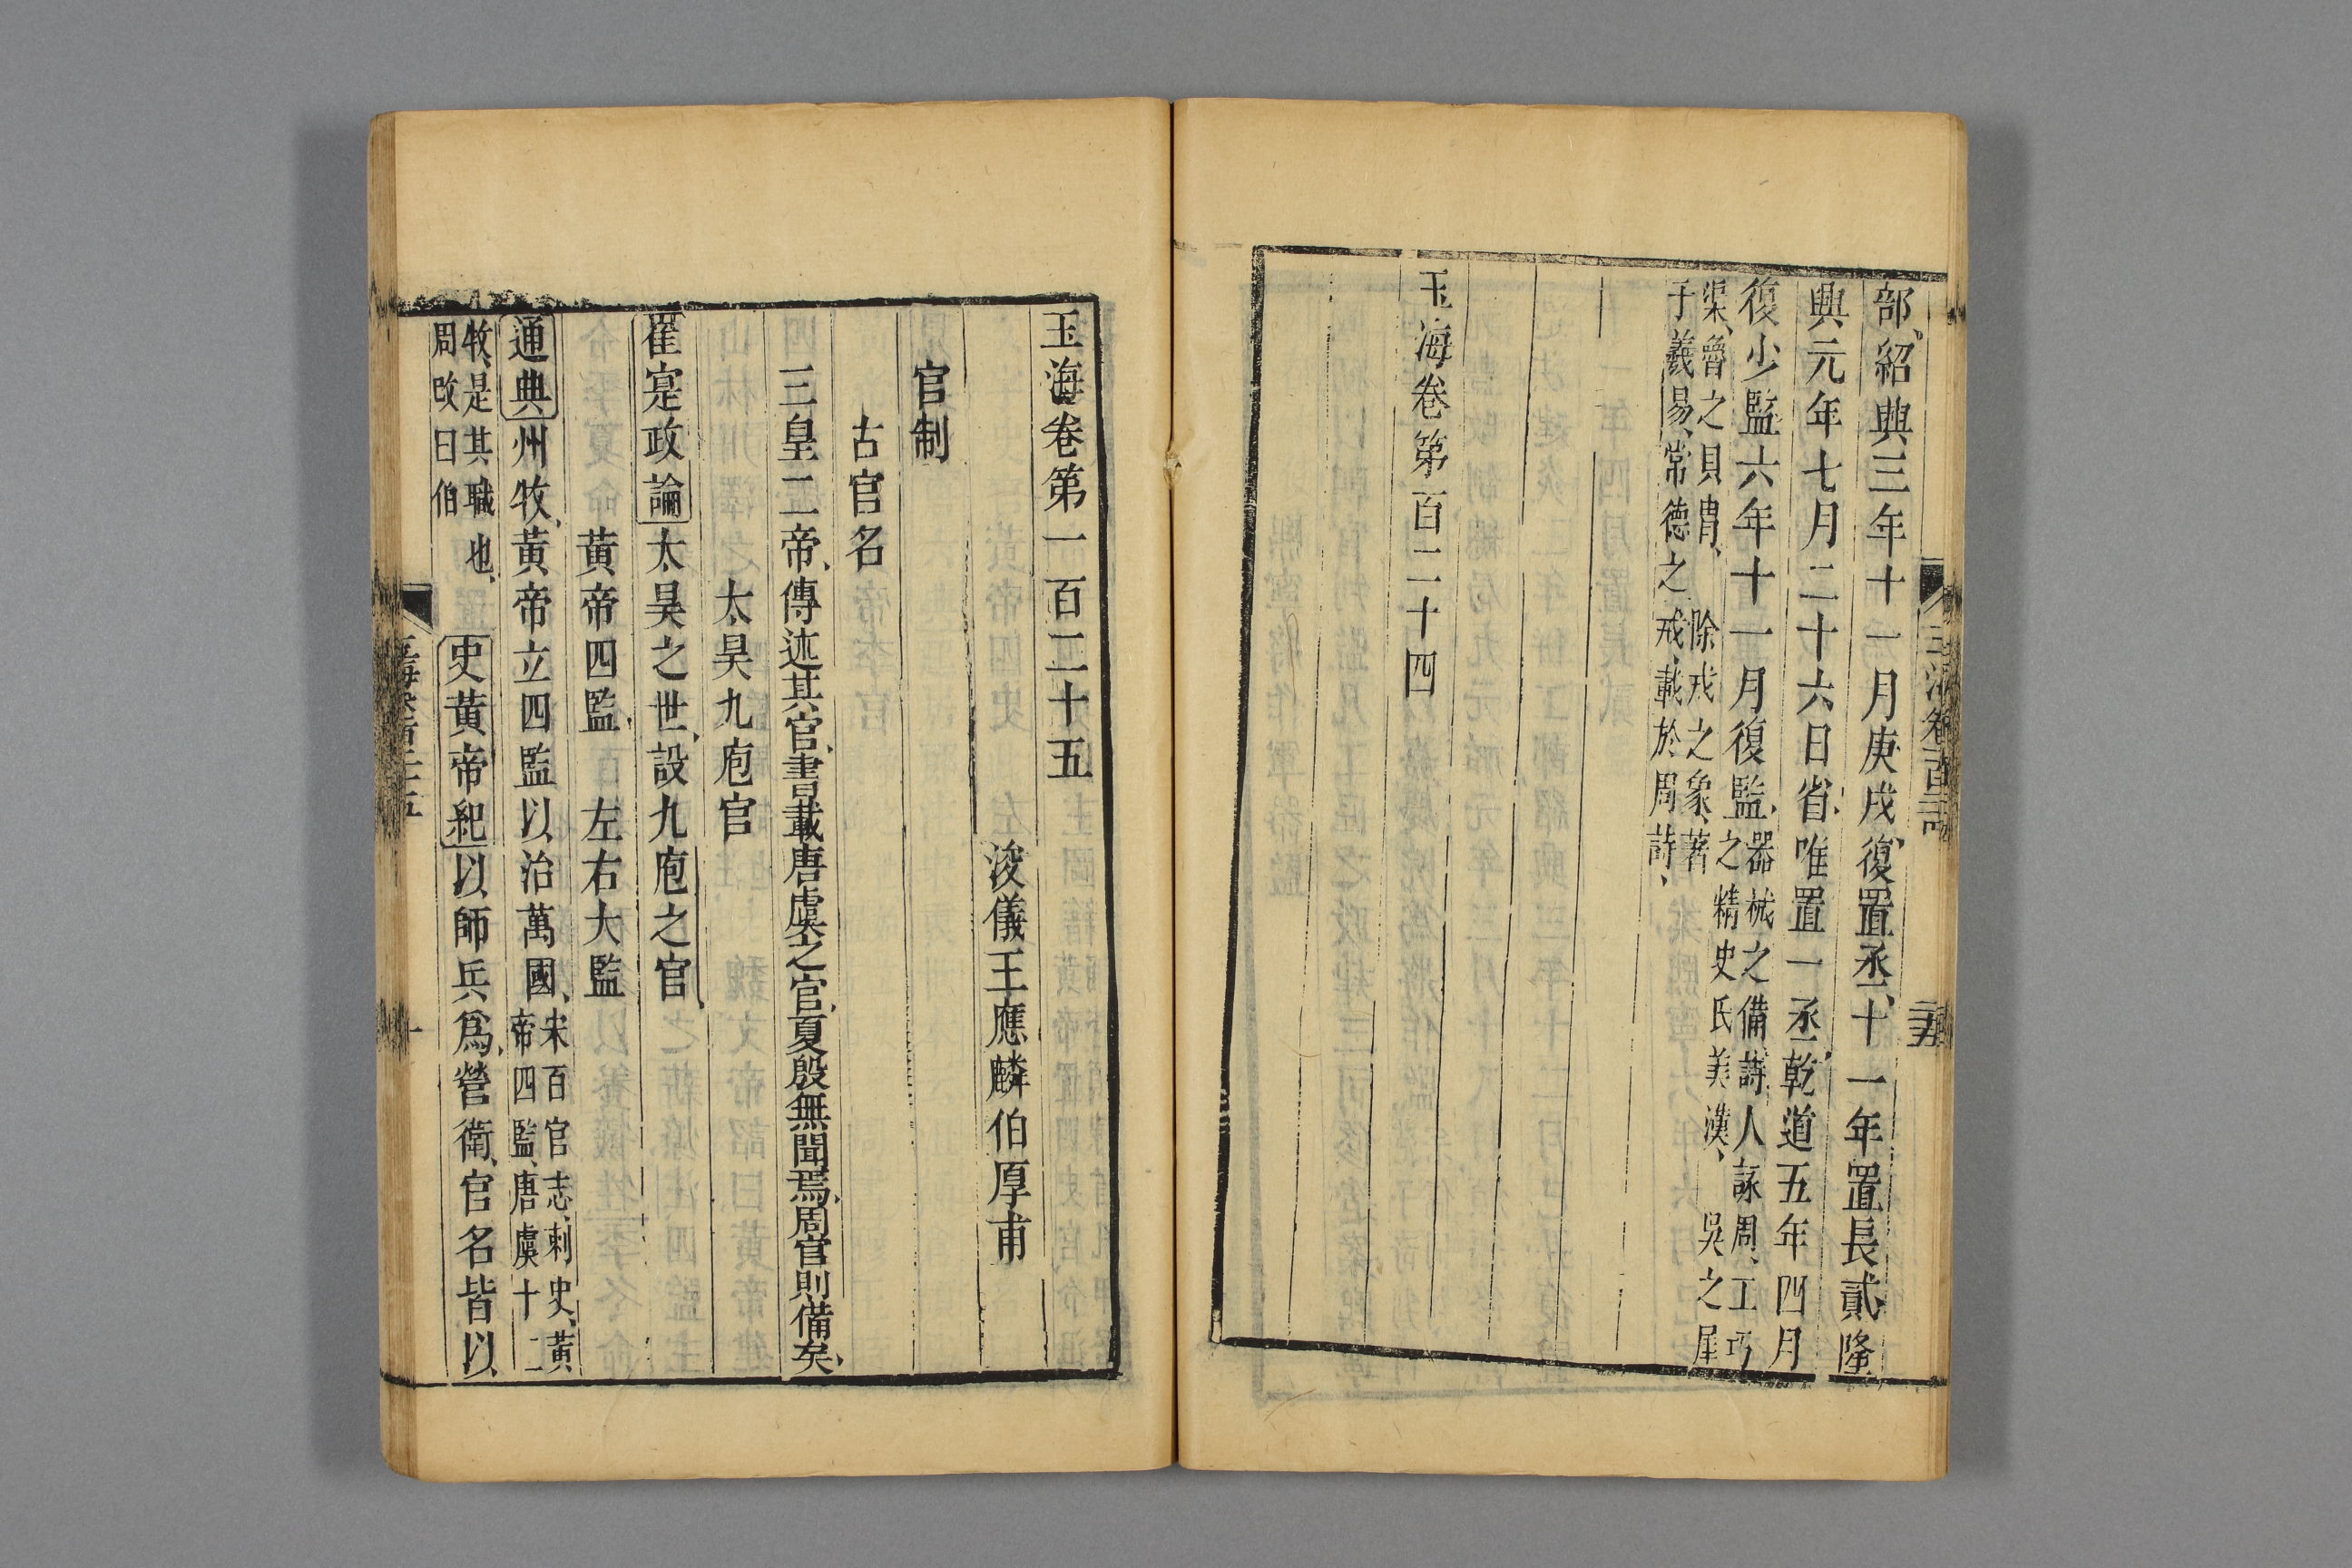 部紹興三年十一月庚戌復置丞十一年置長貳隆
興元年七月二十六日省唯置一丞乾道五年四月
復少監六年十一月復監器械之備詩人詠周工巧
之精史氏美漢吳之犀
渠魯之貝冑除戎之象著
于羲易常德之戒載於周詩
玉海卷第百二十四
玉海卷第一百二十五
浚儀王應麟伯厚甫
官制
古官名
三皇二帝傳述其官書載唐虞之官夏殷無聞焉周官則備矣
太昊九庖官
崔寔政論太昊之世設九庖之官
黃帝四監 左右大監
通典州牧黃帝立四監以治萬國宋百官志刺史黃
帝四監唐虞十二
牧是其職也
周改曰伯
史黃帝紀以師兵為營衛官名皆以